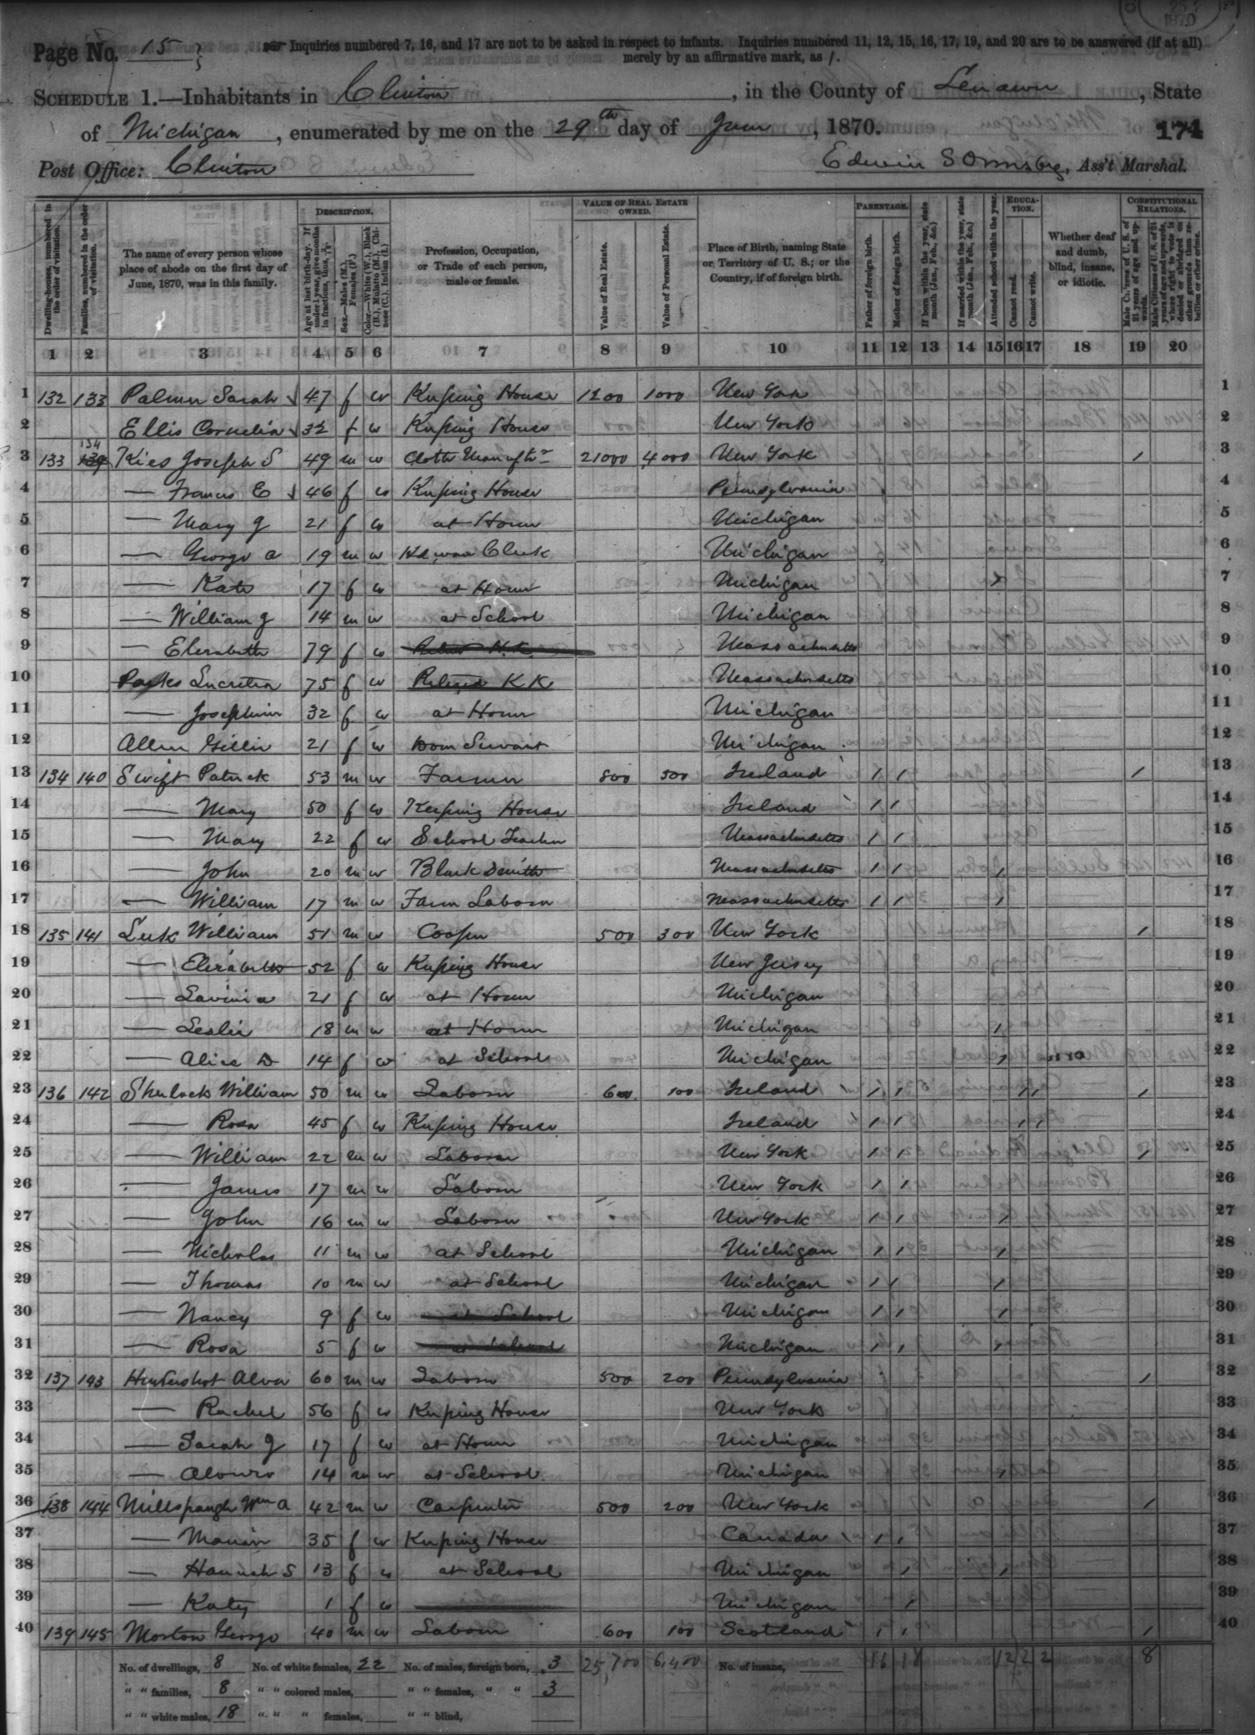 Page No. 15
Inquiries numbered 7, 16, and 17 are not to be asked in respect to infants. Inquiries numbered 11, 12, 15, 16, 17, 19, and 20 are to be answered (if at all) merely by an affirmative mark, as /.
SCHEDULE 1.—Inhabitants in Clinton, in the County of Lenawee, State
of Michigan, enumerated by me on the 29th day of June, 1870.
174
Post Office: Clinton
Edwin S Ormsby, Ass't Marshal.
DESCRIPTION. VALUE OF REAL ESTATE OWNED. PARENTAGE. EDUCATION. CONSTITUTIONAL RELATIONS.
Dwelling-houses, numbered in the order of visitation.
Families, numbered in the order of visitation.
The name of every person whose place of abode on the first day of June, 1870, was in this family.
Age at last birth-day. If under 1 year, give months in fractions, thus,
Sex.—Males (M.), Females (F.)
Color.—White (W.), Black (B.), Mulatto (M.), Chinese (C.), Indian (I.)
Profession, Occupation, or Trade of each person, male or female.
Value of Real Estate.
Value of Personal Estate.
Place of Birth, naming State or Territory of U. S.; or the Country, if of foreign birth.
Father of foreign birth.
Mother of foreign birth.
If born within the year, state month (Jan., Feb., &c.)
If married within the year, state month (Jan., Feb., &c.)
Attended school within the year.
Cannot read.
Cannot write.
Whether deaf and dumb, blind, insane, or idiotic.
Male Citizens of U. S. of 21 years of age and upwards.
1 2 3 4 5 6 7 8 9 10 11 12 13 14 15 16 17 18 19 20
1 132 133 Palmer Sarah 47 f w Keeping House 1200 1000 New York 1
2 Ellis Cornelia 32 f w Keeping House New York 2
3 133 134 Kies Joseph S 49 m w Cloth Manuftr 21000 4000 New York / 3
4 — Francis E 46 f w Keeping House Pennsylvania 4
5 — Mary J 21 f w at Home Michigan 5
6 — George A 19 m w Hd ware Clerk Michigan 6
7 — Kate 17 f w at Home Michigan / 7
8 — William J 14 m w at School Michigan 8
9 — Elizabeth 79 f w Massachusetts 9
10 Parkes Lucretia 75 f w Retired K K Massachusetts 10
11 — Josephine 32 f w at Home Michigan 11
12 Allen 21 f w Dom Servant Michigan 12
13 134 140 Swift Patrick 53 m w Farmer 800 500 Ireland / / / 13
14 — Mary 50 f w Keeping House Ireland / / 14
15 — Mary 22 f w School Teacher Massachusetts / / 15
16 — John 20 m w Black Smith Massachusetts / / / 16
17 — William 17 m w Farm Laborer Massachusetts / / / 17
18 135 141 Luk William 51 m w Cooper 500 300 New York / 18
19 — Elizabeth 52 f w Keeping House New Jersey 19
20 — Lavinia 21 f w at Home Michigan 20
21 — Leslie 18 m w at Home Michigan / 21
22 — Alice D 14 f w at School Michigan / 22
23 136 142 Sherlock William 50 m w Laborer 600 100 Ireland / / / / / 23
24 — Rosa 45 f w Keeping House Ireland / / / / 24
25 — William 22 m w Laborer New York / / / 25
26 — James 17 m w Laborer New York / / 26
27 — John 16 m w Laborer New York / / / 27
28 — Nicholas 11 m w at School Michigan / / / 28
29 — Thomas 10 m w at School Michigan / / / 29
30 — Nancy 9 f w at School Michigan / / / 30
31 — Rosa 5 f w at School Michigan / / / 31
32 137 143 Hendershot Alva 60 m w Laborer 500 200 Pennsylvania / 32
33 — Rachel 56 f w Keeping House New York 33
34 — Sarah J 17 f w at Home Michigan 34
35 — Alonzo 14 m w at School Michigan / 35
36 138 144 Millspaugh Wm A 42 m w Carpenter 500 200 New York / 36
37 — 35 f w Keeping House Canada / / 37
38 — Hannah S 13 f w at School Michigan / / 38
39 — Katy 1 f w Michigan / 39
40 139 145 Morton George 40 m w Laborer 600 100 Scotland / / / 40
No. of dwellings, 8 No. of white females, 22 No. of males, foreign born, 3 25,700 6,400 No. of insane, 16 18 12 2 2 8
" " families, 8 " " colored males, " " females, " " 3
" " white males, 18 " " " females, " " blind,